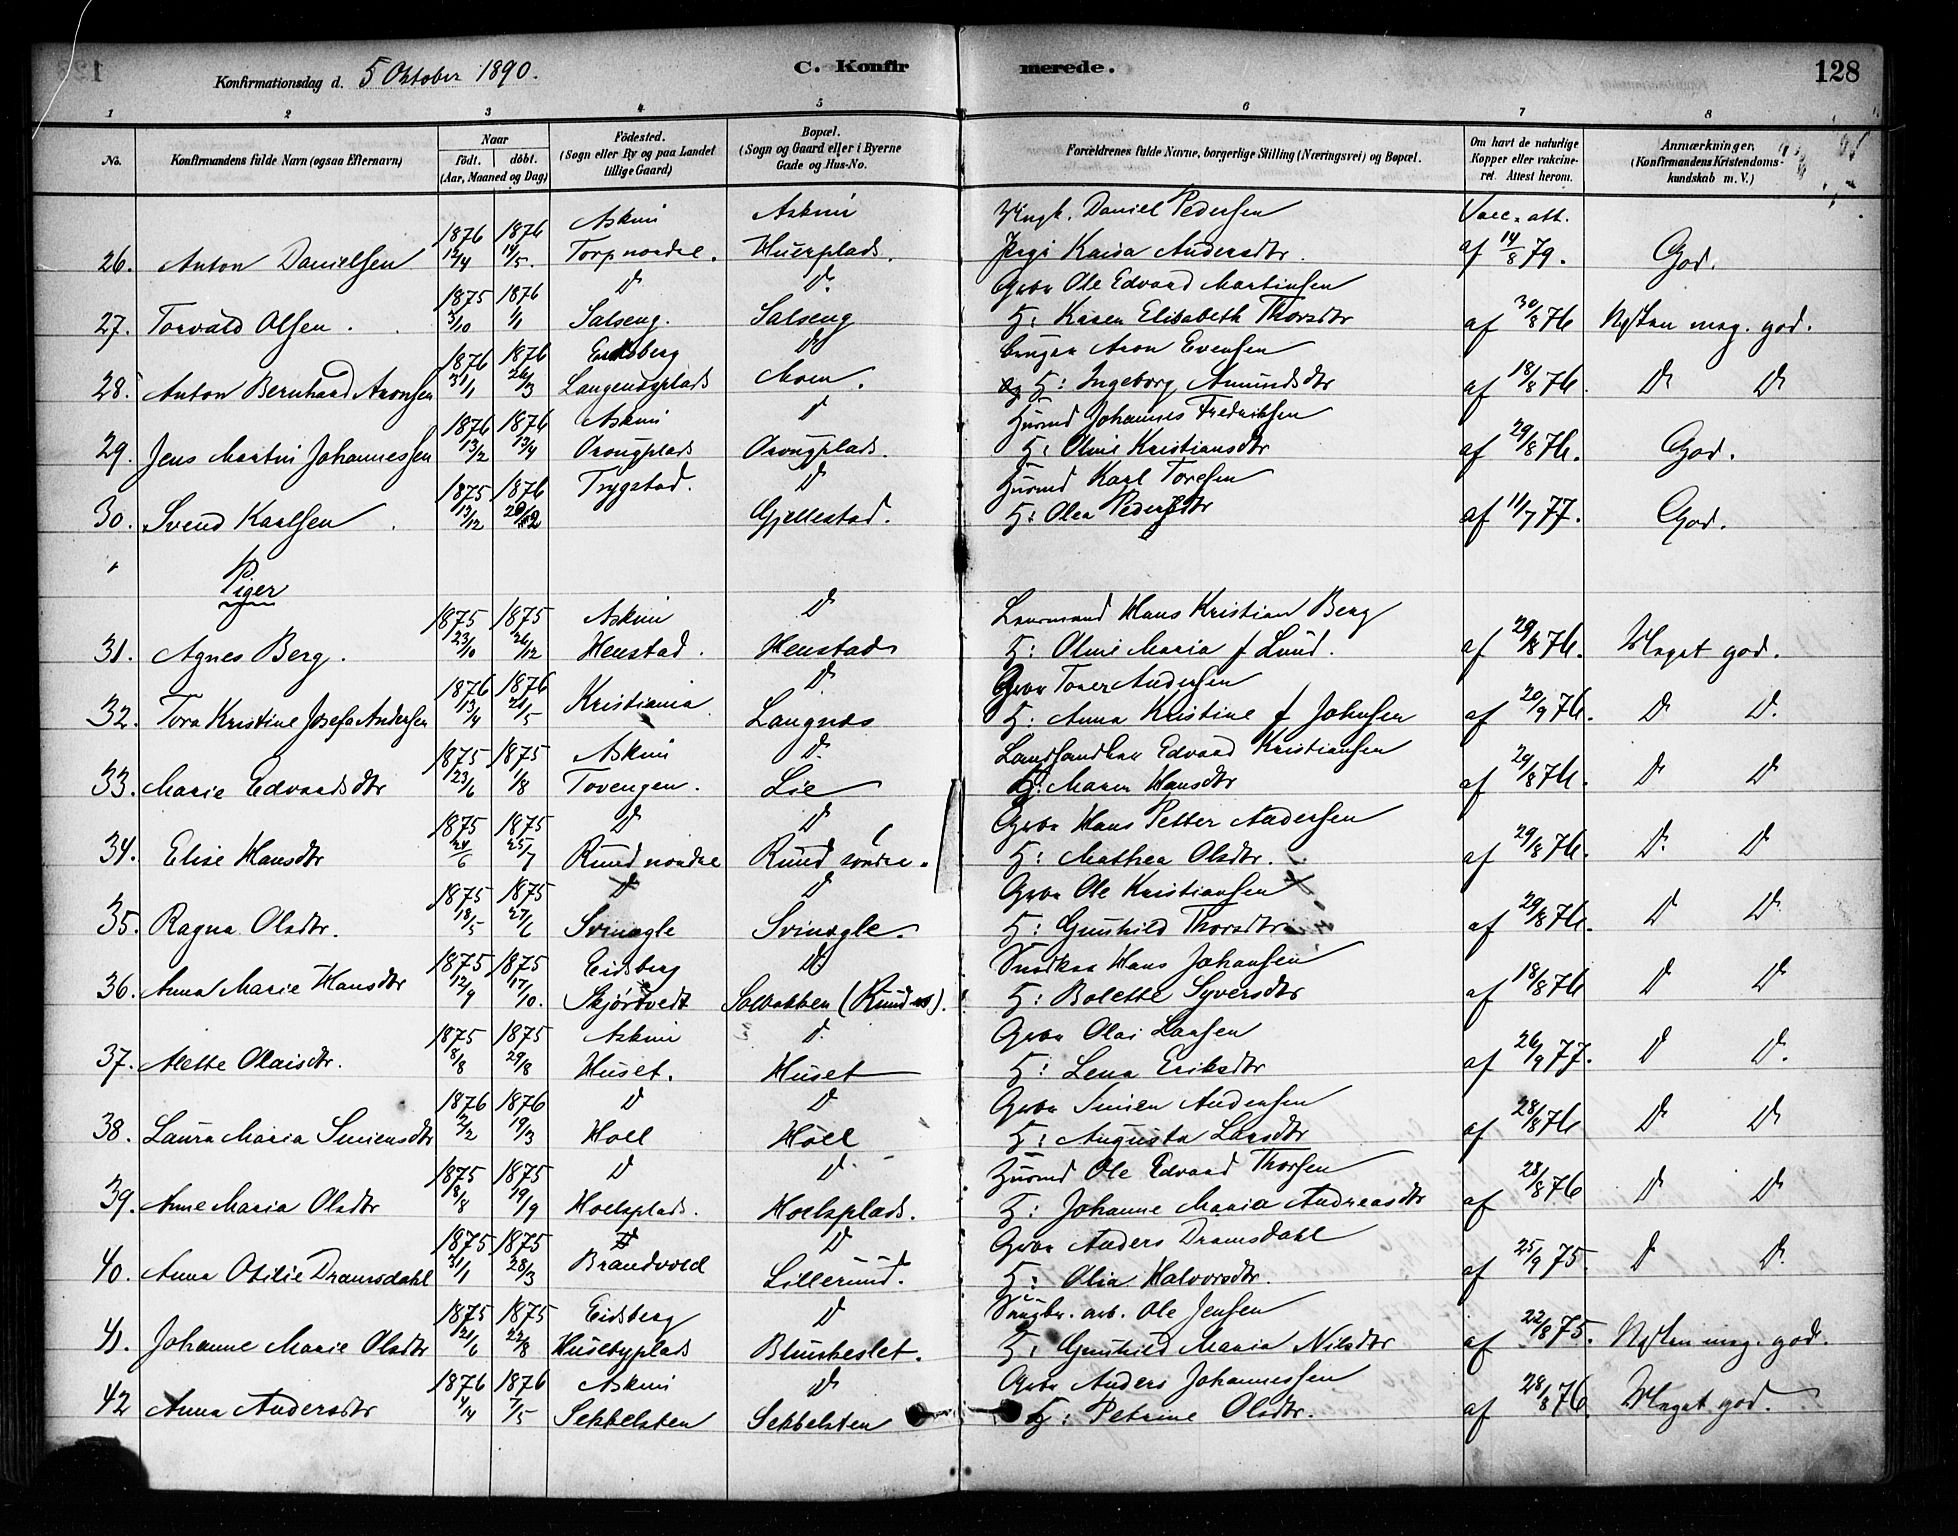 Konfirmationsdag d. 5 Oktober 1890. C. Konfirmerede. 128
1 2 3 4 5 6 7 8
No. Konfirmandens fulde Navn (ogsaa Efternavn) Naar født. døbt. (Aar, Maaned og Dag) Fødested. (Sogn eller By og paa Landet tillige Gaard) Bopæl. (Sogn og Gaard eller i Byerne Gade og Hus-No. Forældrenes fulde Navne, borgerlige Stilling (Næringsvei) og Bopæl. Om havt de naturlige Kopper eller vakcineret. Attest herom. Anmærkninger, (Konfirmandens Kristendomskundskab m. V.)
1876 1876 Askim Askim Daniel Pedersen Vacc. att.
26. Anton Danielsen 12/4 14/5. Torp nordre. Huerplads. Pige Kaisa Andersdtr. af 14/8 79. God.
1875 1876 D D Gbr Ole Edvard Martinsen
27. Torvald Olsen. 3/10 1/1 Salseng. Salseng H: Karen Elisabeth Thorsdtr af 30/8 76 Næsten meg. god.
1876 1876 Eidsberg D Aron Evensen
28. Anton Bernhard Aronsen 31/1 26/3 Langenesplads Moen. H: Ingeborg Amundsdtr af 18/8 76. D D
1876 1876 Askim D Husmd Johannes Fredriksen
29. Jens Martin Johannessen 13/2 13/4 Oraugplads Oraugplads. H: Oline Kristiansdtr af 29/8 76. God.
1875 1876 Trygstad. D Husmd Karl Toresen
30. Svend Karlsen 13/12 Gjellestad. H: Olea Pedersdtr af 11/7 77. God.
Piger
1875 1875 Askim D Lensmand Hans Kristian Berg
31. Agnes Berg. 23/10 26/12 Henstad. Henstad H: Oline Maria f Lund. af 29/8 76. Meget god.
1876 1876 Kristiania D Gbr Tover Andersen
32. Tora Kristine Josefa Andersen 13/4 21/5 Langnes H: Anna Kristine f Johnsen af 20/9 76. D D.
1875 1875 Askim D. Landhandler Edvard Kristiansen
33. Marie Edvardsdtr 23/6 1/8 Tovengen. Lie H: Maren Hansdtr af 29/8 76. D D
1875 1875 D D Gbr Hans Petter Andersen
34. Elise Hansdtr 24/6 25/7 Rund nordre Rund søndre. H: Mathea Olsdtr. af 29/8 76. D. D
1875 1875 D D Gbr Ole Kristiansen
35. Ragna Olsdtr. 18/5 27/6 Svinøgle Svinøgle. H: Gunhild Thorsdtr af 29/8 76. D D
1875 1875 Eidsberg D. Snedker Hans Johansen
36. Anna Marie Hansdtr 12/9 17/10. Skjørtvedt Solbakken (Rund ns). H: Bolette Syversdtr af 18/8 76 D D
1875 1875 Askim D. Gbr Olai Larsen
37. Alette Olaisdtr. 8/8 29/8 Huset. Huset H: Lena Eriksdtr af 26/9 77. D D.
1876 1876 D D Gbr Simen Andersen
38. Laura Maria Simensdtr 2/2 19/3 Hoel Hoel H: Augusta Larsdtr af 28/8 76 D D
1875 1875 D D Husmd Ole Edvard Thorsen
39. Anne Maria Olsdtr 18/8 19/9 Hoelsplads. Hoelsplads. H: Johanne Maria Andreasdtr af 28/8 76 D D
1875 1875 D D Gbr Anders Dramsdahl
40. Anna Otilie Dramsdahl 31/1 28/3 Brandvold Lillerund. H: Olia Halvorsdtr. af 25/9 75. D D.
1875 1875 Eidsberg D Sagbr. arb. Ole Jensen
41. Johanne Marie Olsdtr 21/6 22/8 Husebyplads H: Gunhild Maria Nilsdtr af 22/8 75. Næsten meg. god.
1876 1876 Askim D Gbr Anders Johannessen
42 Anna Andersdtr 4/4 7/5 Sekkelsten Sekkelsten H: Petrine Olsdtr. af 28/8 76. Meget god.